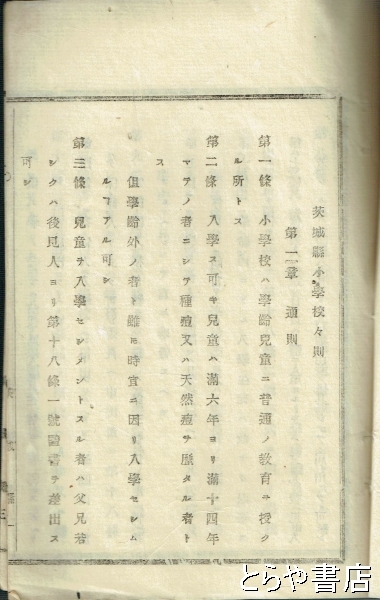 茨城縣小學校々則
第一章　通則
第一條　小學校ハ學齡兒童ニ普通ノ教育ヲ授ク
ル所トス
第二條　入學ス可キ兒童ハ滿六年ヨリ滿十四年
マテノ者ニシテ種痘又ハ天然痘ヲ歷タル者ト
ス
但學齡外ノ者ト雖モ時宜ニ因リ入學セシム
ルヿアル可シ
第三條　兒童ヲ入學セシメントスル者ハ父兄若
シクハ後見人ヨリ第十八條一號證書ヲ差出ス
可シ
とらや書店